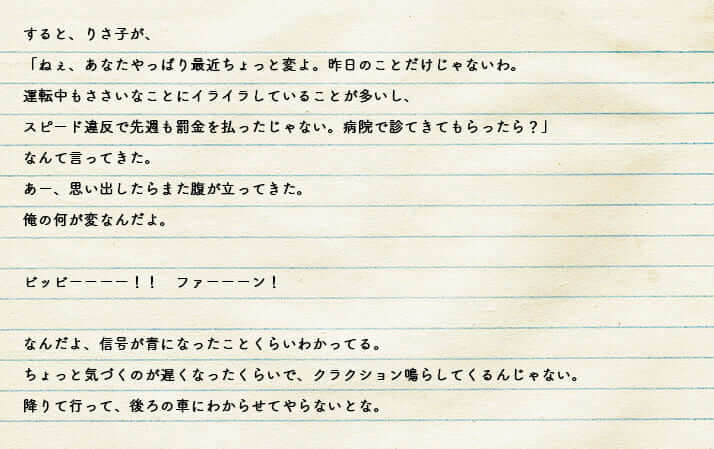 すると、りさ子が、
「ねぇ、あなたやっぱり最近ちょっと変よ。昨日のことだけじゃないわ。
運転中もささいなことにイライラしていることが多いし、
スピード違反で先週も罰金を払ったじゃない。病院で診てきてもらったら？」
なんて言ってきた。
あー、思い出したらまた腹が立ってきた。
俺の何が変なんだよ。
ピッピーーーー！！　ファーーーン！
なんだよ、信号が青になったことくらいわかってる。
ちょっと気づくのが遅くなったくらいで、クラクション鳴らしてくるんじゃない。
降りて行って、後ろの車にわからせてやらないとな。